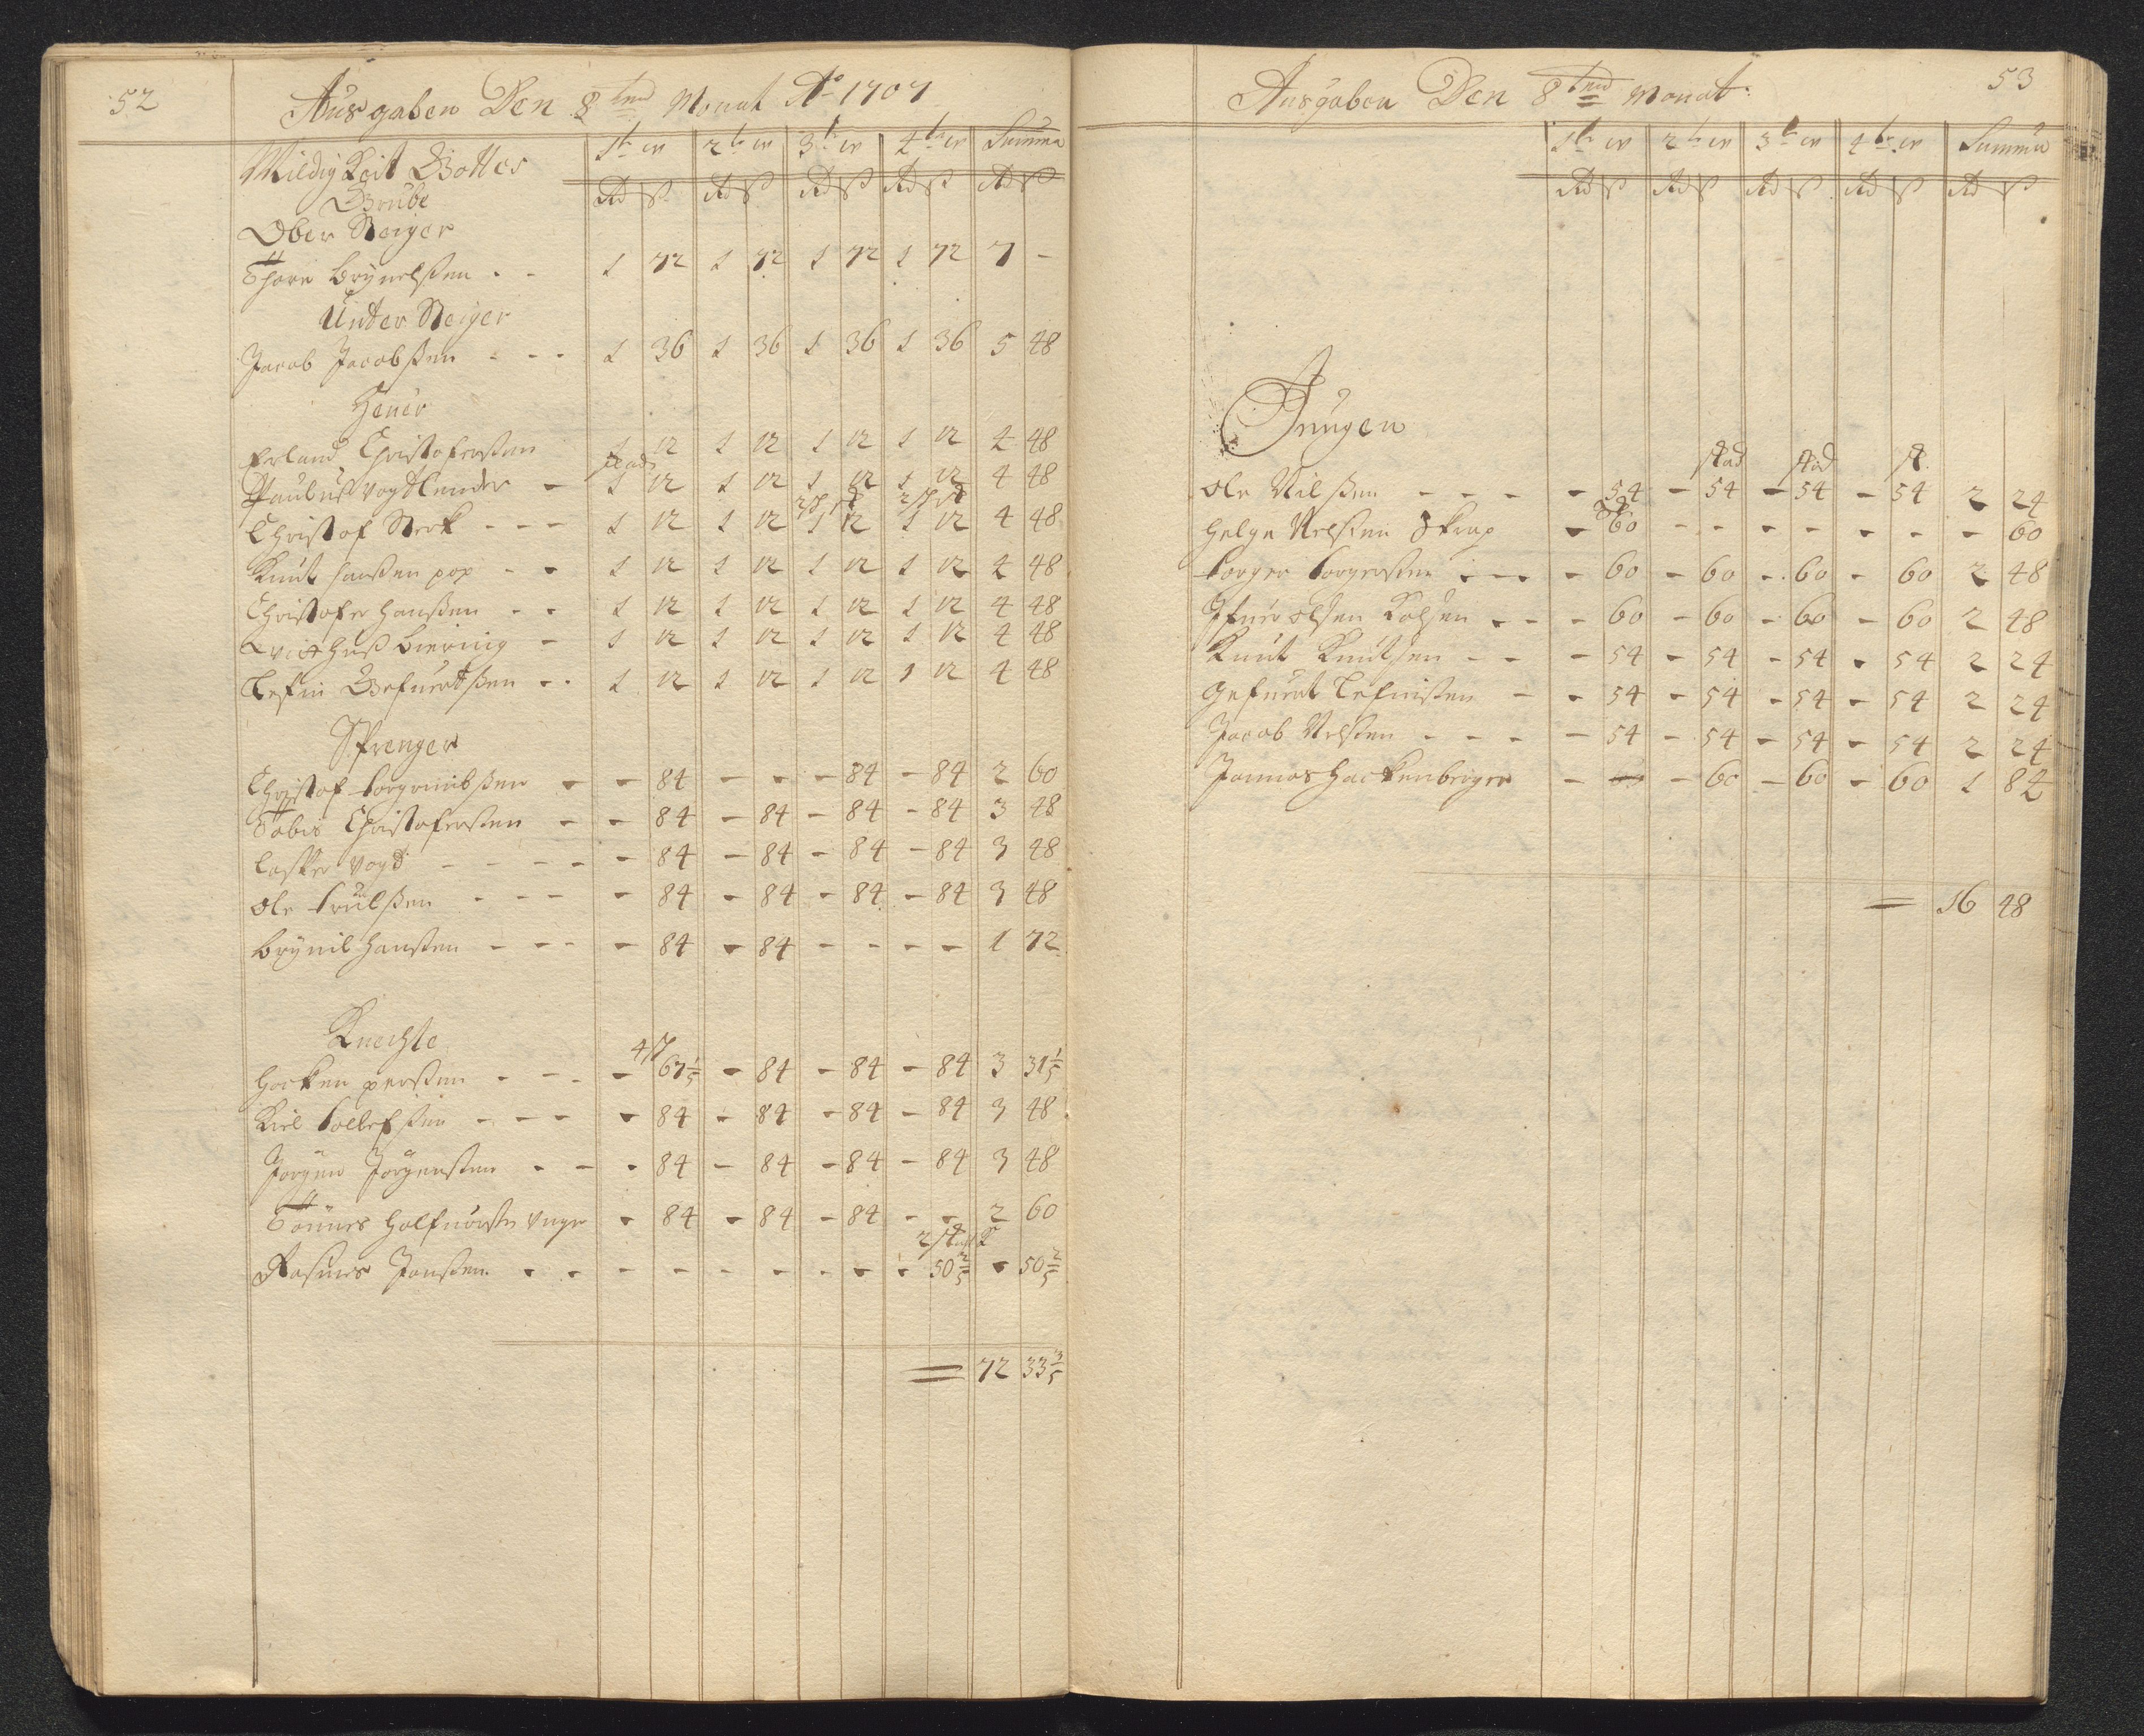 52
Ausgaben Den 8 tend Monat Ao 1707
Mildigkeit Gottes 1te w 2te w 3te w 4te w Summa
Grube Rd ß Rd ß Rd ß Rd ß Rd ß
Ober Steiger
Thore Brÿnelßen 1 72 1 72 1 72 1 72 7 -
Unter Steiger
Jacob Jacobßen - - - 1 36 1 36 1 36 1 36 5 48
Heuer
Erland Christoferßen 1 12 1 12 1 12 1 12 4 48
Paulus Vogtlender - 1 12 1 12 1 12 1 12 4 48
Christof Sterk - - - 1 12 1 12 1 12 1 12 4 48
Knut Hanßen pop - - 1 12 1 12 1 12 1 12 4 48
Christofer Hanßen - - 1 12 1 12 1 12 1 12 4 48
Biernig - 1 12 1 12 1 12 1 12 4 48
Lefin Gefuertßen - - 1 12 1 12 1 12 1 12 4 48
Sprenger
Christof - - 84 - - - 84 - 84 2 60
Tobis Christoferßen - - 84 - 84 - 84 - 84 3 48
Casper Vogt - - - - - 84 - 84 - 84 - 84 3 48
Ole Trulßen - - - - 84 - 84 - 84 - 84 3 48
Brÿnil Hanßen - - - - 84 - 84 - - - - 1 72
Knechte
4 ß
Hacken perßen - - - - 67 1/5 - 84 - 84 - 84 3 31 1/5
Kiel Tollefßen - - - - 84 - 84 - 84 - 84 3 48
Jorgen Jorgenßen - - - 84 - 84 - 84 - 84 3 48
Tönnes Halfuorßen Unge - 84 - 84 - 84 - - 2 60
Rasmus Janßen - - - - - - - - - 50 2/5 - 50 2/5
= 72 33 3/5
53
Ausgaben Den 8 tend Monat
1te w 2te w 3te w 4te w Summa
Rd ß Rd ß Rd ß Rd ß Rd ß
Jungen
stad stad st
Ole Nilßen - - - - 54 - 54 - 54 - 54 2 24
Helge Nelßen Skrap - 60 - - - - - - - 60
Torger Torgerßen - - - 60 - 60 - 60 - 60 2 48
Ifuer Olsen Kolsen - - - 60 - 60 - 60 - 60 2 48
Knut Knutsen - - - 54 - 54 - 54 - 54 2 24
Gefuert Lefinßen - - 54 - 54 - 54 - 54 2 24
Jacob Nelßen - - - - 54 - 54 - 54 - 54 2 24
Hackenberger - 60 - 60 - 60 - 60 1 84
= 16 48